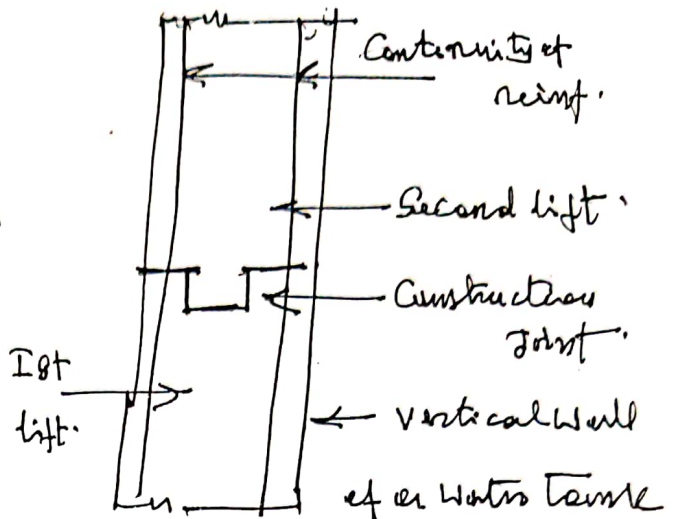 Continuity of
reinf.
Second lift.
Construction
Joint.
Ist
lift.
Vertical Wall
of a Water Tank